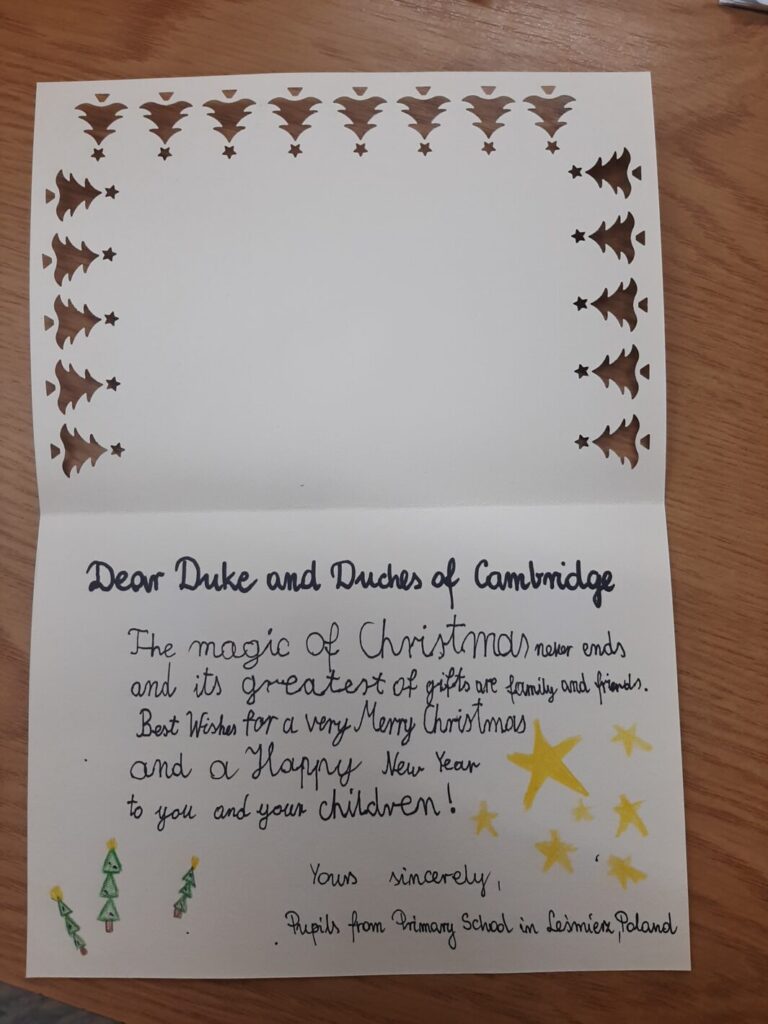 Dear Duke and Duches of Cambridge
The magic of Christmas never ends
and its greatest of gifts are family and friends.
Best Wishes for a very Merry Christmas
and a Happy New Year
to you and your children!
Yours sincerely,
Pupils from Primary School in Leśmierz, Poland